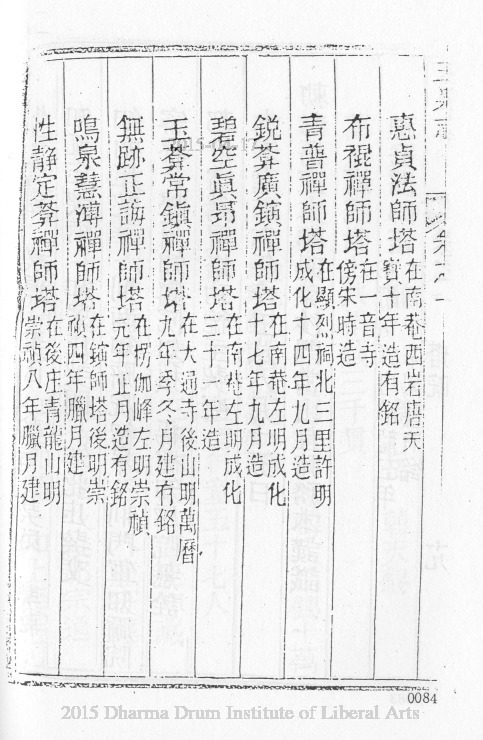 惠貞法師塔在南菴西岩唐天寶十年造有銘
布裩禪師塔在一音寺傍宋時造
青普禪師塔在顯烈祠北三里許明成化十四年九月造
銳菶廣鎮禪師塔在南菴左明成化十七年九月造
碧空眞昂禪師塔在南菴左明成化二十一年造
玉菶常鎮禪師塔在大通寺後山明萬曆九年季冬月建有銘
無跡正誨禪師塔在楞伽峰左明崇禎元年正月造有銘
鳴泉慧溥禪師塔在鎮師塔後明崇禎四年臘月建
性静定菶禪師塔在後庄青龍山明崇禎八年臘月建
0084
2015 Dharma Drum Institute of Liberal Arts